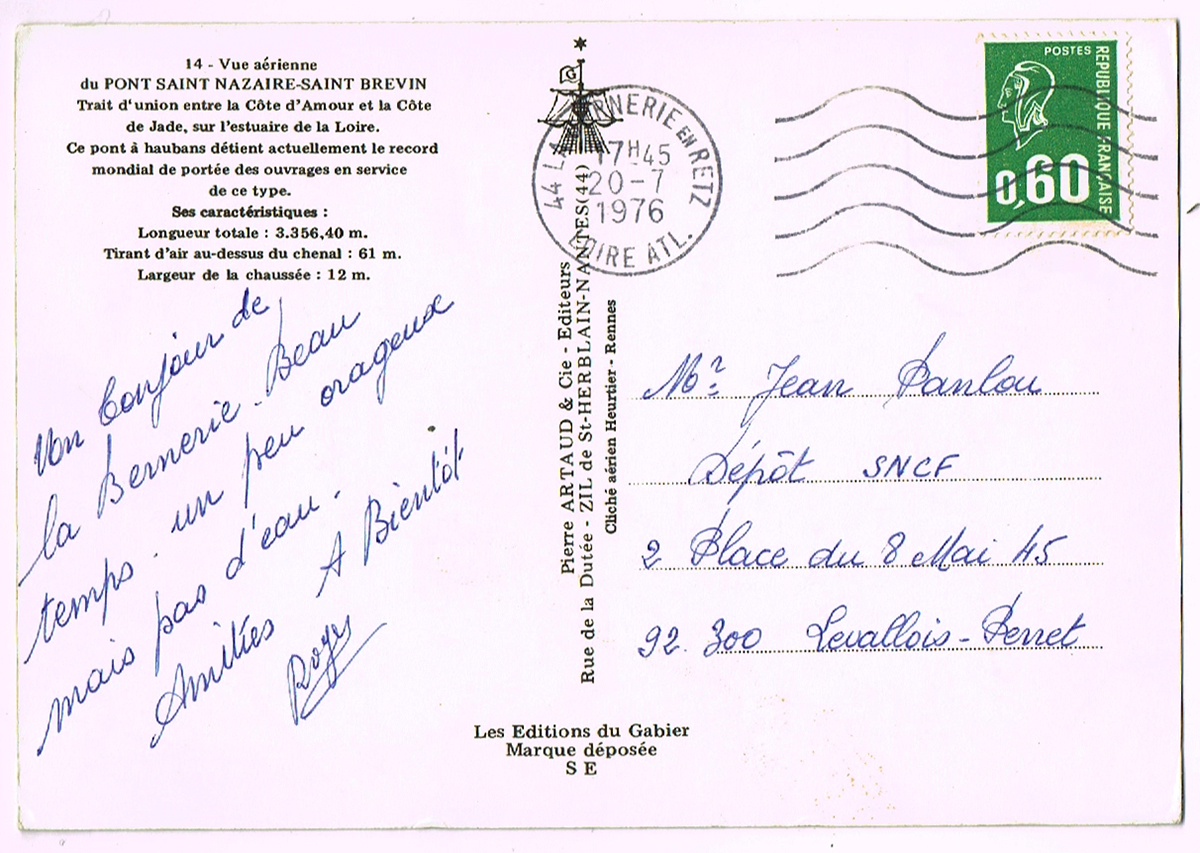 14 - Vue aérienne
du PONT SAINT NAZAIRE-SAINT BREVIN
Trait d'union entre la Côte d'Amour et la Côte
de Jade, sur l'estuaire de la Loire.
Ce pont à haubans détient actuellement le record
mondial de portée des ouvrages en service
de ce type.
Ses caractéristiques :
Longueur totale : 3.356,40 m.
Tirant d'air au-dessus du chenal : 61 m.
Largeur de la chaussée : 12 m.
Un bonjour de
la Bernerie. Beau
temps. un peu orageux
mais pas d'eau.
Amitiés A Bientôt
Roger
Pierre ARTAUD & Cie - Editeurs
Rue de la Dutée - ZIL de St-HERBLAIN-NANTES(44)
Cliché aérien Heurtier - Rennes
G
44 LA BERNERIE EN RETZ
17H45
20-7
1976
LOIRE ATL.
POSTES
REPUBLIQUE FRANÇAISE
0,60
Mr Jean
Dépôt SNCF
2 Place du 8 Mai 45
92.300 Levallois-Perret
Les Editions du Gabier
Marque déposée
S E